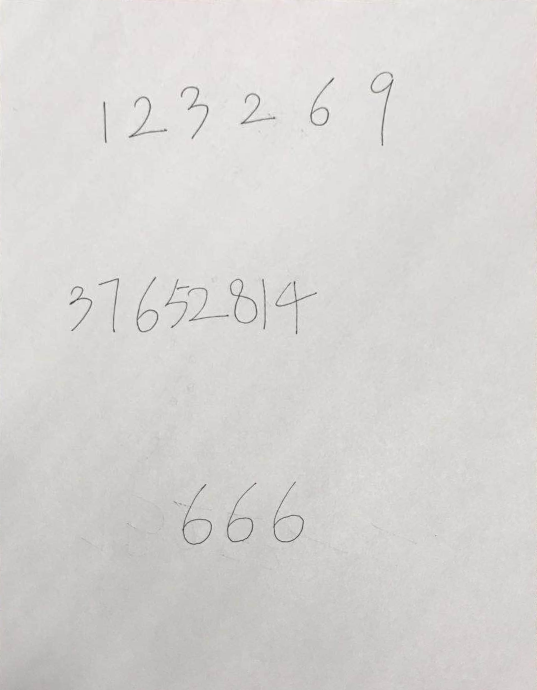 123 2 6 9
37652814
666